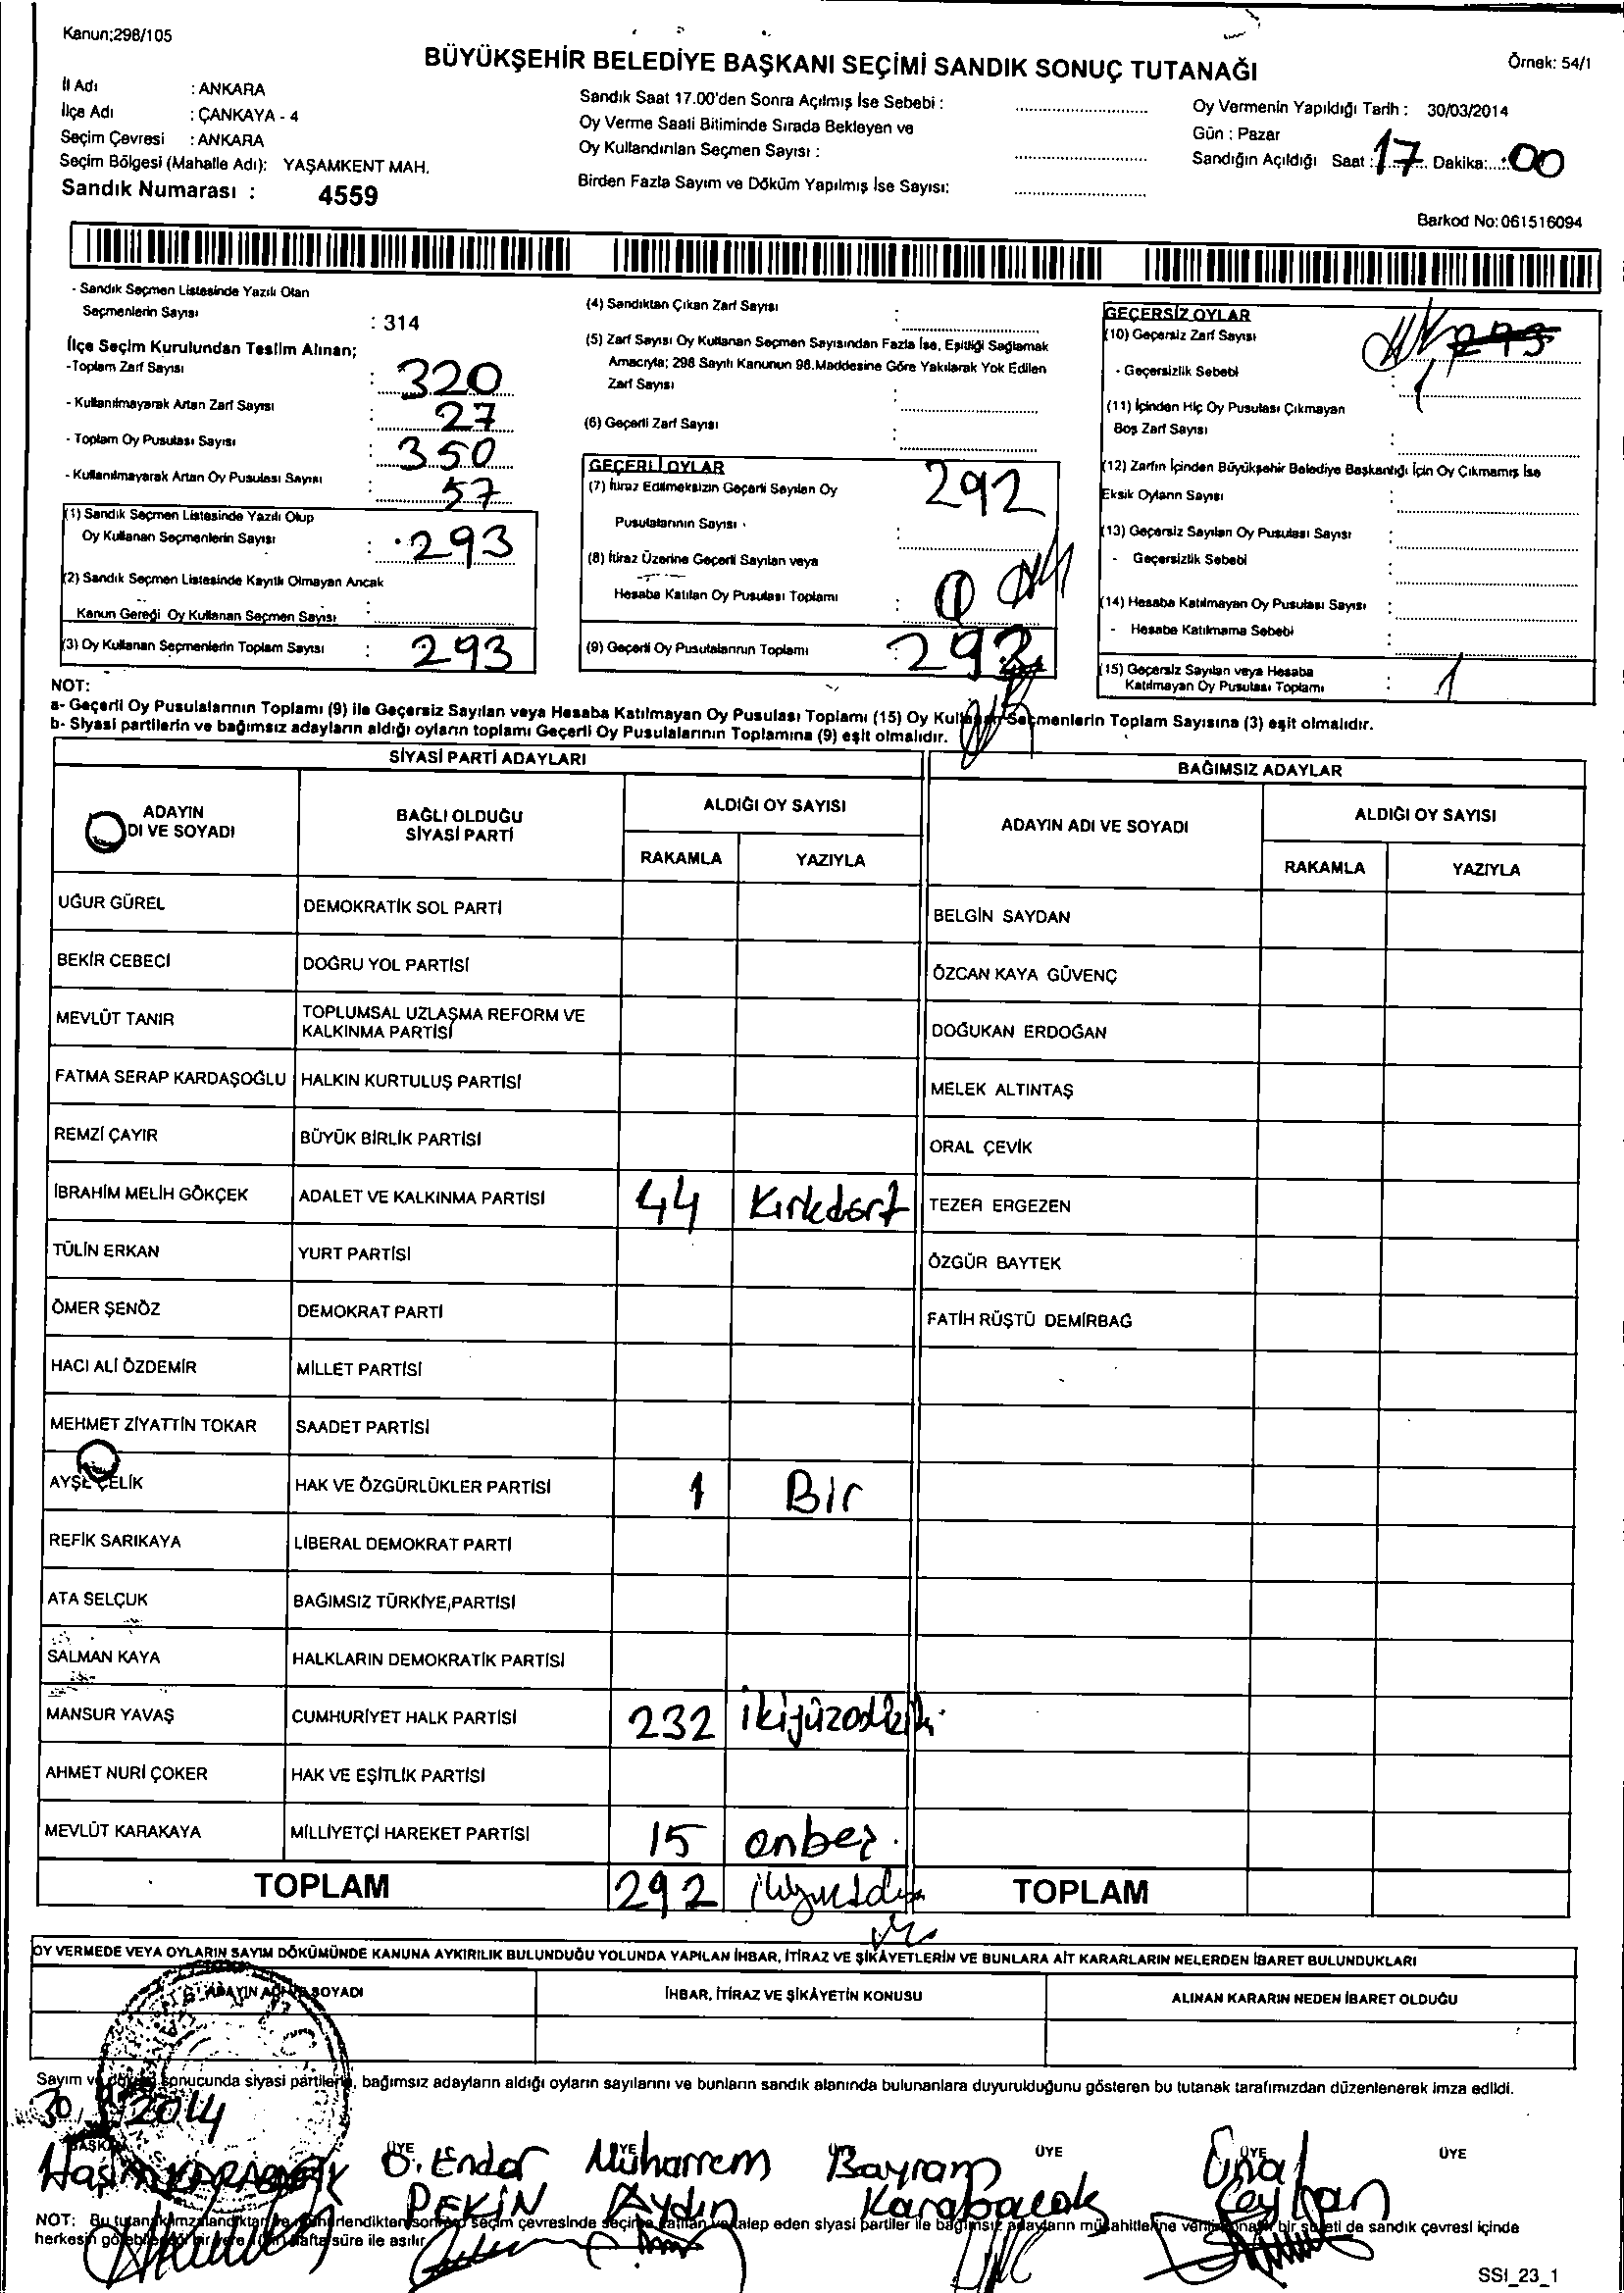 Kanun;298/105
BÜYÜKŞEHİR BELEDİYE BAŞKANI SEÇİMİ SANDIK SONUÇ TUTANAĞI
Örnek: 54/1
İl Adı : ANKARA
İlçe Adı : ÇANKAYA - 4
Seçim Çevresi : ANKARA
Seçim Bölgesi (Mahalle Adı): YAŞAMKENT MAH.
Sandık Numarası : 4559
Sandık Saat 17.00'den Sonra Açılmış İse Sebebi :
Oy Verme Saati Bitiminde Sırada Bekleyen ve
Oy Kullandırılan Seçmen Sayısı :
Birden Fazla Sayım ve Döküm Yapılmış İse Sayısı:
Oy Vermenin Yapıldığı Tarih : 30/03/2014
Gün : Pazar
Sandığın Açıldığı Saat : 17 Dakika: 00
Barkod No: 061516094
- Sandık Seçmen Listesinde Yazılı Olan
Seçmenlerin Sayısı : 314
İlçe Seçim Kurulundan Teslim Alınan;
-Toplam Zarf Sayısı : 320
- Kullanılmayarak Artan Zarf Sayısı : 27
- Toplam Oy Pusulası Sayısı : 350
- Kullanılmayarak Artan Oy Pusulası Sayısı : 57
(1) Sandık Seçmen Listesinde Yazılı Olup
Oy Kullanan Seçmenlerin Sayısı : 293
(2) Sandık Seçmen Listesinde Kayıtlı Olmayan Ancak
Kanun Gereği Oy Kullanan Seçmen Sayısı :
(3) Oy Kullanan Seçmenlerin Toplam Sayısı : 293
(4) Sandıktan Çıkan Zarf Sayısı :
(5) Zarf Sayısı Oy Kullanan Seçmen Sayısından Fazla İse, Eşitliği Sağlamak
Amacıyla; 298 Sayılı Kanunun 98.Maddesine Göre Yakılarak Yok Edilen
Zarf Sayısı :
(6) Geçerli Zarf Sayısı :
GEÇERLİ OYLAR
(7) İtiraz Edilmeksizin Geçerli Sayılan Oy 292
Pusulalarının Sayısı :
(8) İtiraz Üzerine Geçerli Sayılan veya
Hesaba Katılan Oy Pusulası Toplamı :
(9) Geçerli Oy Pusulalarının Toplamı : 292
GEÇERSİZ OYLAR
(10) Geçersiz Zarf Sayısı : 293
- Geçersizlik Sebebi : 1
(11) İçinden Hiç Oy Pusulası Çıkmayan
Boş Zarf Sayısı :
(12) Zarfın İçinden Büyükşehir Belediye Başkanlığı İçin Oy Çıkmamış İse
Eksik Oyların Sayısı :
(13) Geçersiz Sayılan Oy Pusulası Sayısı :
- Geçersizlik Sebebi :
(14) Hesaba Katılmayan Oy Pusulası Sayısı :
- Hesaba Katılmama Sebebi :
(15) Geçersiz Sayılan veya Hesaba
Katılmayan Oy Pusulası Toplamı : 1
NOT:
a- Geçerli Oy Pusulalarının Toplamı (9) ile Geçersiz Sayılan veya Hesaba Katılmayan Oy Pusulası Toplamı (15) Oy Kullanan Seçmenlerin Toplam Sayısına (3) eşit olmalıdır.
b- Siyasi partilerin ve bağımsız adayların aldığı oyların toplamı Geçerli Oy Pusulalarının Toplamına (9) eşit olmalıdır.
SİYASİ PARTİ ADAYLARI
BAĞIMSIZ ADAYLAR
ADAYIN
DI VE SOYADI
BAĞLI OLDUĞU
SİYASİ PARTİ
ALDIĞI OY SAYISI
RAKAMLA YAZIYLA
ADAYIN ADI VE SOYADI
ALDIĞI OY SAYISI
RAKAMLA YAZIYLA
UĞUR GÜREL DEMOKRATİK SOL PARTİ BELGİN SAYDAN
BEKİR CEBECİ DOĞRU YOL PARTİSİ ÖZCAN KAYA GÜVENÇ
MEVLÜT TANIR TOPLUMSAL UZLAŞMA REFORM VE
KALKINMA PARTİSİ DOĞUKAN ERDOĞAN
FATMA SERAP KARDAŞOĞLU HALKIN KURTULUŞ PARTİSİ MELEK ALTINTAŞ
REMZİ ÇAYIR BÜYÜK BİRLİK PARTİSİ ORAL ÇEVİK
İBRAHİM MELİH GÖKÇEK ADALET VE KALKINMA PARTİSİ 44 Kırkdört TEZER ERGEZEN
TÜLİN ERKAN YURT PARTİSİ ÖZGÜR BAYTEK
ÖMER ŞENÖZ DEMOKRAT PARTİ FATİH RÜŞTÜ DEMİRBAĞ
HACI ALİ ÖZDEMİR MİLLET PARTİSİ
MEHMET ZİYATTİN TOKAR SAADET PARTİSİ
AYŞE ÇELİK HAK VE ÖZGÜRLÜKLER PARTİSİ 1 Bir
REFİK SARIKAYA LİBERAL DEMOKRAT PARTİ
ATA SELÇUK BAĞIMSIZ TÜRKİYE PARTİSİ
SALMAN KAYA HALKLARIN DEMOKRATİK PARTİSİ
MANSUR YAVAŞ CUMHURİYET HALK PARTİSİ 232
AHMET NURİ ÇOKER HAK VE EŞİTLİK PARTİSİ
MEVLÜT KARAKAYA MİLLİYETÇİ HAREKET PARTİSİ 15 onbeş
TOPLAM 292 TOPLAM
OY VERMEDE VEYA OYLARIN SAYIM DÖKÜMÜNDE KANUNA AYKIRILIK BULUNDUĞU YOLUNDA YAPILAN İHBAR, İTİRAZ VE ŞİKÂYETLERİN VE BUNLARA AİT KARARLARIN NELERDEN İBARET BULUNDUKLARI
ADAYIN ADI VE SOYADI İHBAR, İTİRAZ VE ŞİKÂYETİN KONUSU ALINAN KARARIN NEDEN İBARET OLDUĞU
Sayım ve döküm sonucunda siyasi partilerin, bağımsız adayların aldığı oyların sayılarını ve bunların sandık alanında bulunanlara duyurulduğunu gösteren bu tutanak tarafımızdan düzenlenerek imza edildi.
30 2014
BAŞKAN ÜYE ÜYE ÜYE ÜYE ÜYE ÜYE
Ö. Ender Muharrem Bayram Ünal
PEKİN Aydın Karabacak Ceyhan
NOT: Bu tutanak imzalandıktan ve mühürlendikten sonra seçim çevresinde seçime katılan ve talep eden siyasi partiler ile bağımsız adayların müşahitlerine verilir bir sureti de sandık çevresi içinde
herkesin görebileceği bir yere hafta süre ile asılır.
SSI_23_1